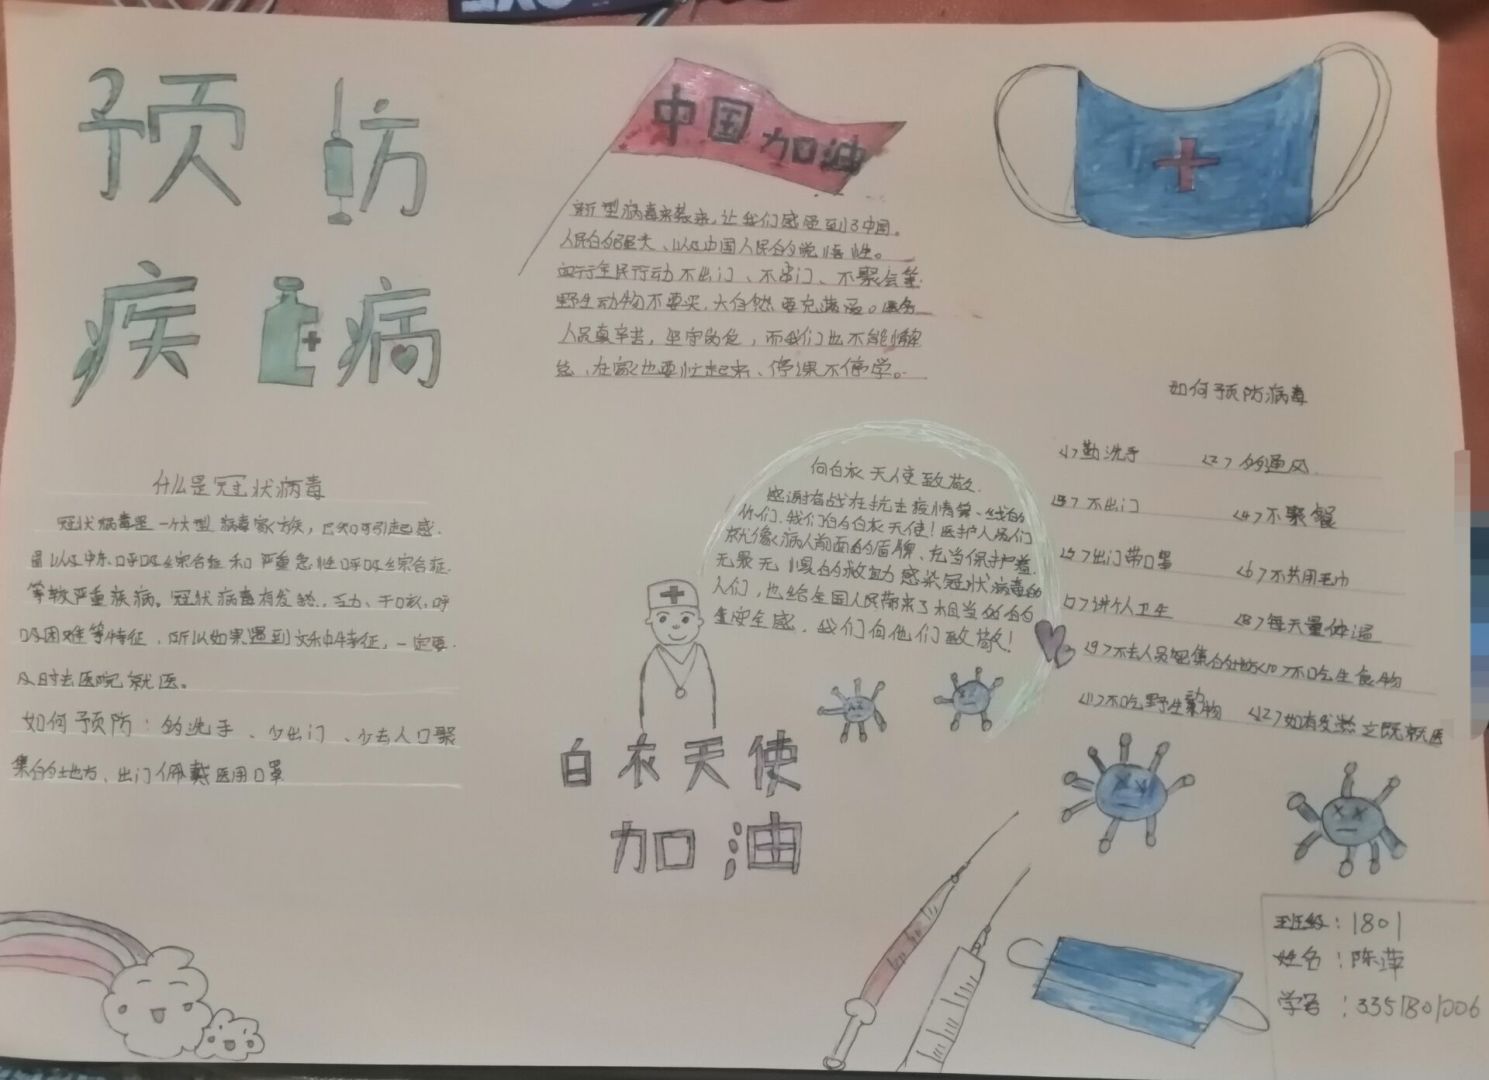 预防
疾病
什么是冠状病毒
冠状病毒是一个大型病毒家族，已知可引起感
冒以及中东呼吸综合征和严重急性呼吸综合征
等较严重疾病。冠状病毒有发热、乏力、干咳、呼
吸困难等特征，所以如果遇到文中特征，一定要
及时去医院就医。
如何预防：多洗手、少出门、少去人口聚
集的地方、出门佩戴医用口罩
中国加油
新型病毒来袭来，让我们感受到了中国。
人民的强大、以及中国人民的 性。
全民行动不出门、不串门、不聚会等
野生动物不要买，大自然要充满 。医务
人员真辛苦，坚守岗位，而我们也不能懈
怠，在家也要忙起来、停课不停学。
向白衣天使致敬
感谢奋战在抗击疫情第一线的
你们，我们的白衣天使！医护人员们
就像病人前面的盾牌、充当保护着
无畏无惧的救助感染冠状病毒的
人们，也给全国人民带来了相当的
安全感，我们向他们致敬！
白衣天使
加油
如何预防病毒
<1>勤洗手 <2>多通风
<3>不出门 <4>不聚餐
<5>出门带口罩 <6>不共用毛巾
<7>讲个人卫生 <8>每天量体温
<9>不去人员密集的地方<10>不吃生食物
<11>不吃野生动物 <12>如有发热立既就医
班级：1801
姓名：陈萍
学号：3351801006